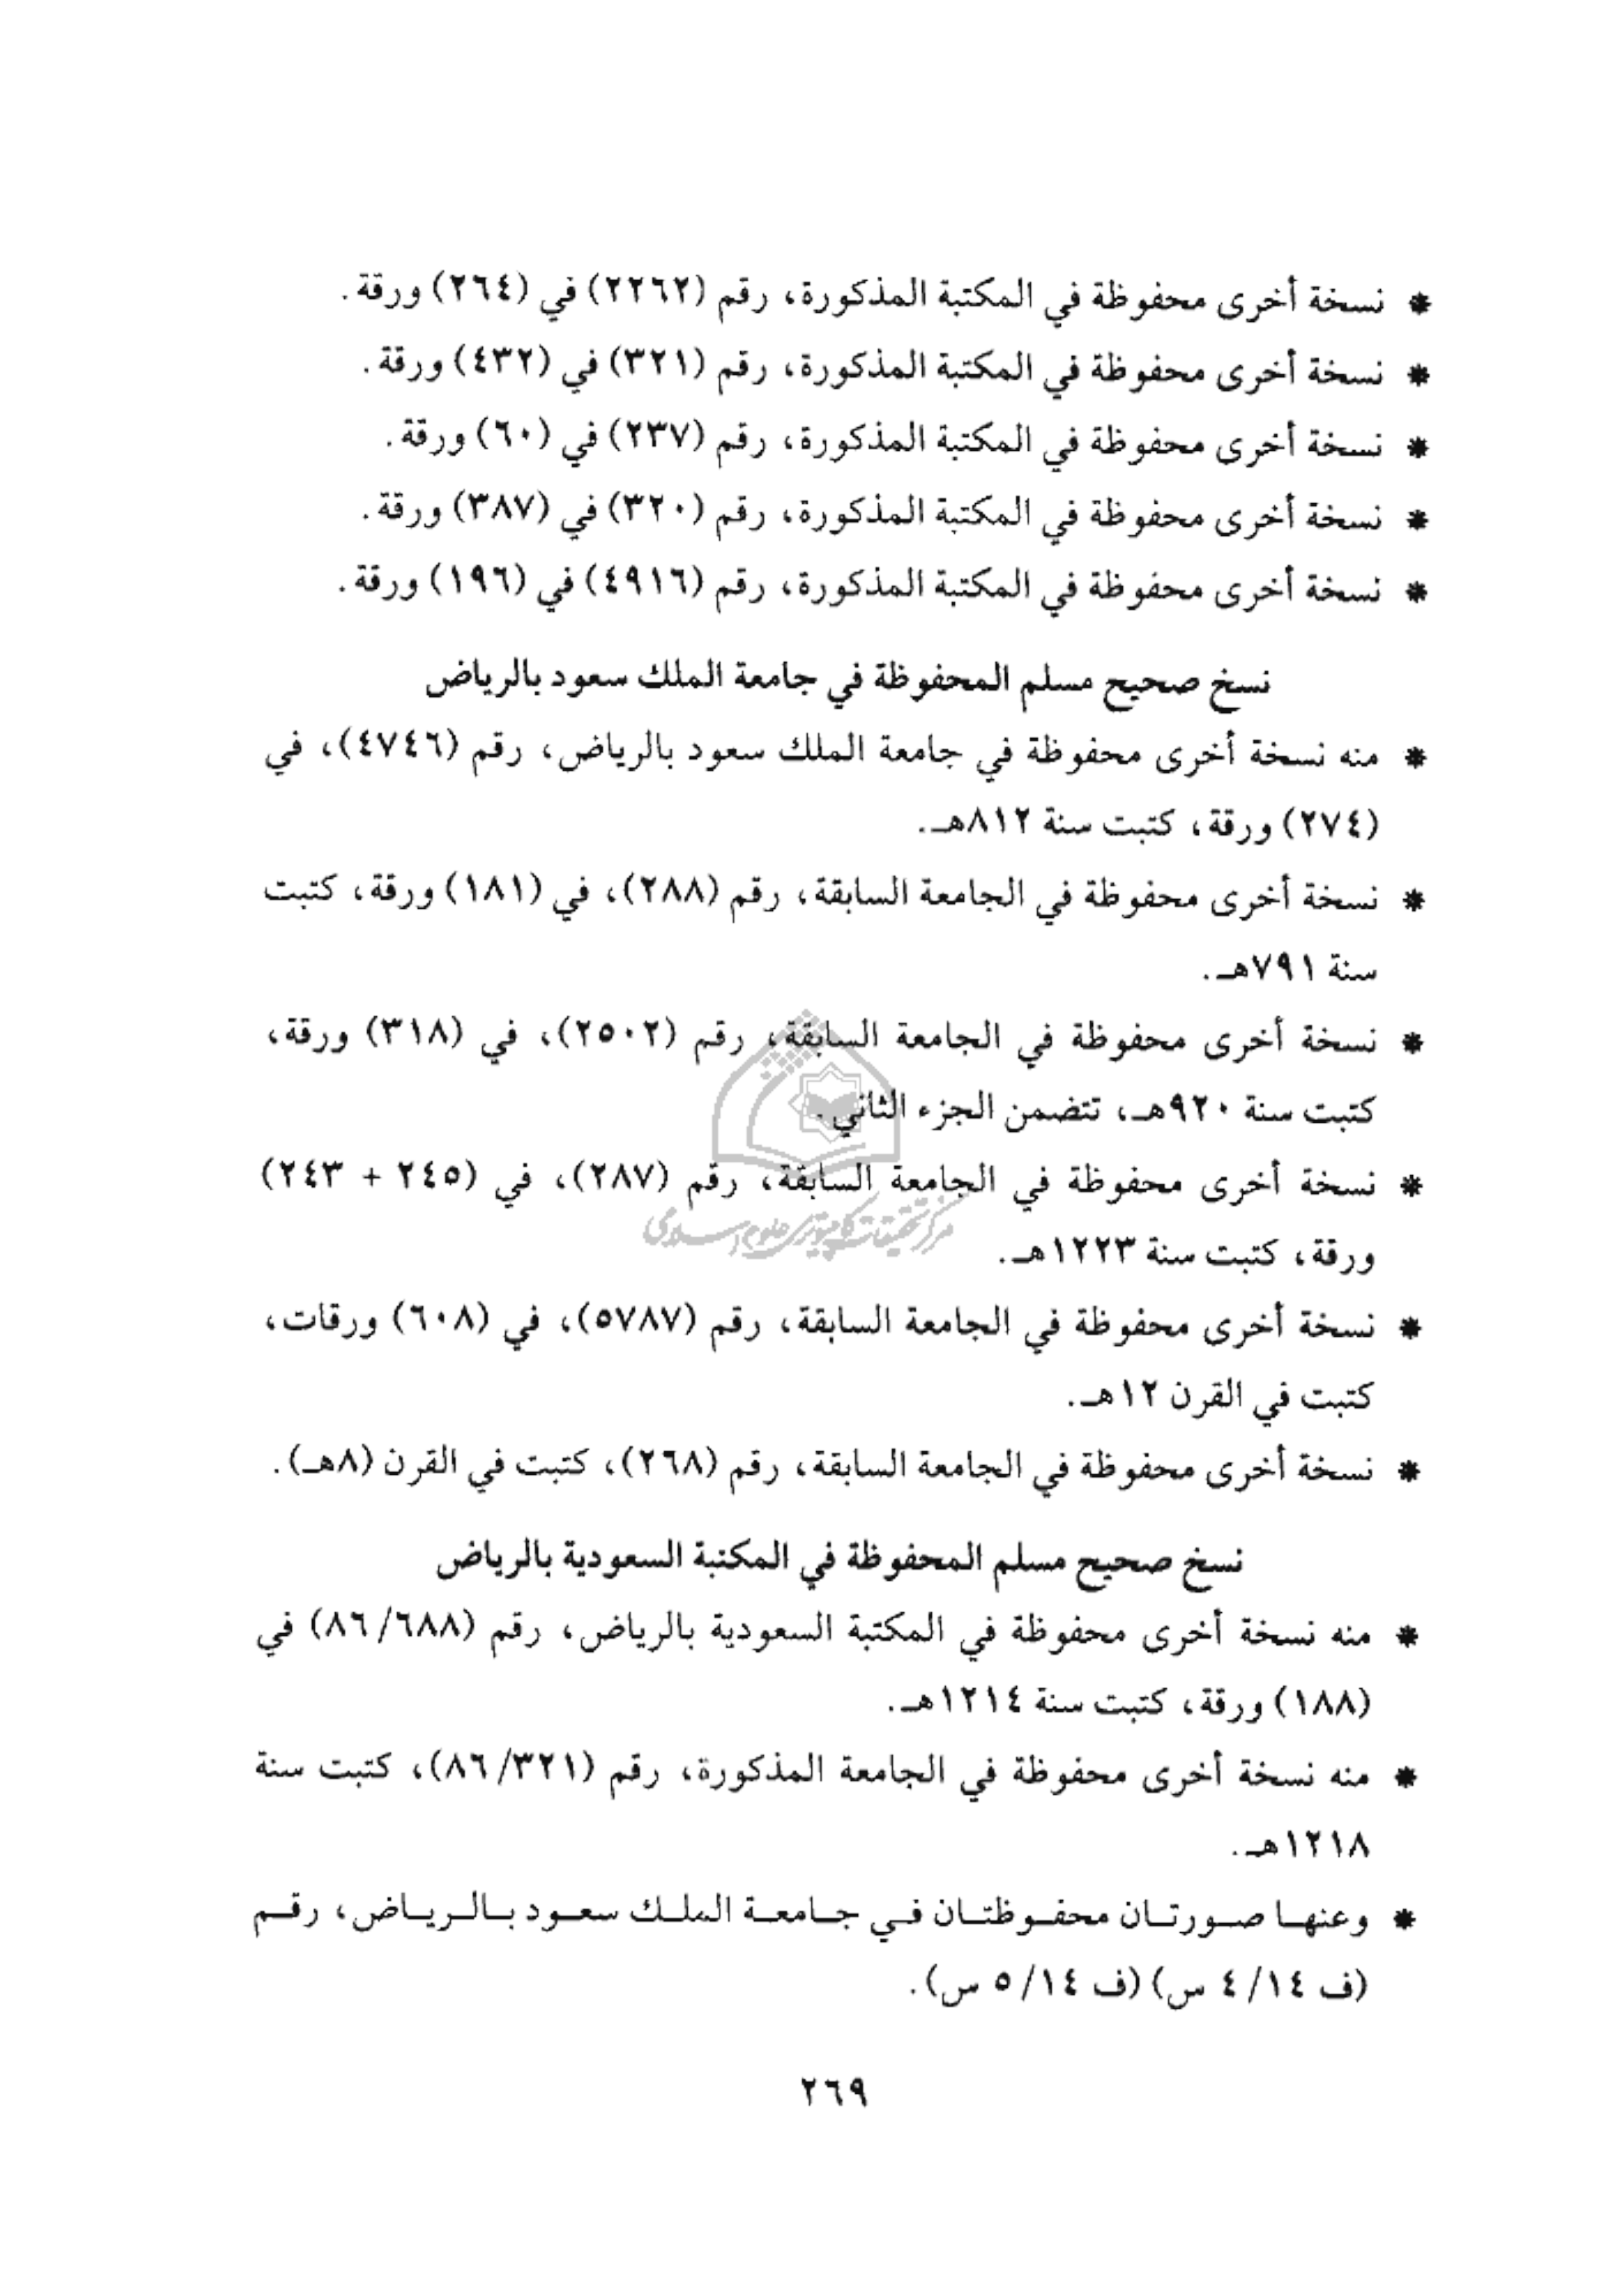 * نسخة أخرى محفوظة في المكتبة المذكورة، رقم (٢٢٦٢) في (٢٦٤) ورقة.
* نسخة أخرى محفوظة في المكتبة المذكورة، رقم (٣٢١) في (٤٣٢) ورقة.
* نسخة أخرى محفوظة في المكتبة المذكورة، رقم (٢٣٧) في (٦٠) ورقة.
* نسخة أخرى محفوظة في المكتبة المذكورة، رقم (٣٢٠) في (٣٨٧) ورقة.
* نسخة أخرى محفوظة في المكتبة المذكورة، رقم (٤٩١٦) في (١٩٦) ورقة.
نسخ صحيح مسلم المحفوظة في جامعة الملك سعود بالرياض
* منه نسخة أخرى محفوظة في جامعة الملك سعود بالرياض، رقم (٤٧٤٦)، في
(٢٧٤) ورقة، كتبت سنة ٨١٢هـ.
* نسخة أخرى محفوظة في الجامعة السابقة، رقم (٢٨٨)، في (١٨١) ورقة، كتبت
سنة ٧٩١هـ.
* نسخة أخرى محفوظة في الجامعة السابقة، رقم (٢٥٠٢)، في (٣١٨) ورقة،
كتبت سنة ٩٢٠هـ، تتضمن الجزء الثاني.
* نسخة أخرى محفوظة في الجامعة السابقة، رقم (٢٨٧)، في (٢٤٥ + ٢٤٣)
مركز تحقيقات كامپيوتري علوم اسلامي
ورقة، كتبت سنة ١٢٢٣هـ.
* نسخة أخرى محفوظة في الجامعة السابقة، رقم (٥٧٨٧)، في (٦٠٨) ورقات،
كتبت في القرن ١٢هـ.
* نسخة أخرى محفوظة في الجامعة السابقة، رقم (٢٦٨)، كتبت في القرن (٨هـ).
نسخ صحيح مسلم المحفوظة في المكتبة السعودية بالرياض
* منه نسخة أخرى محفوظة في المكتبة السعودية بالرياض، رقم (٨٦/٦٨٨) في
(١٨٨) ورقة، كتبت سنة ١٢١٤هـ.
* منه نسخة أخرى محفوظة في الجامعة المذكورة، رقم (٨٦/٣٢١)، كتبت سنة
١٢١٨هـ.
* وعنهـا صـورتـان محفـوظتـان فـي جـامعـة الملـك سعـود بـالـريـاض، رقـم
(ف ٤/١٤ س) (ف ٥/١٤ س).
٢٦٩